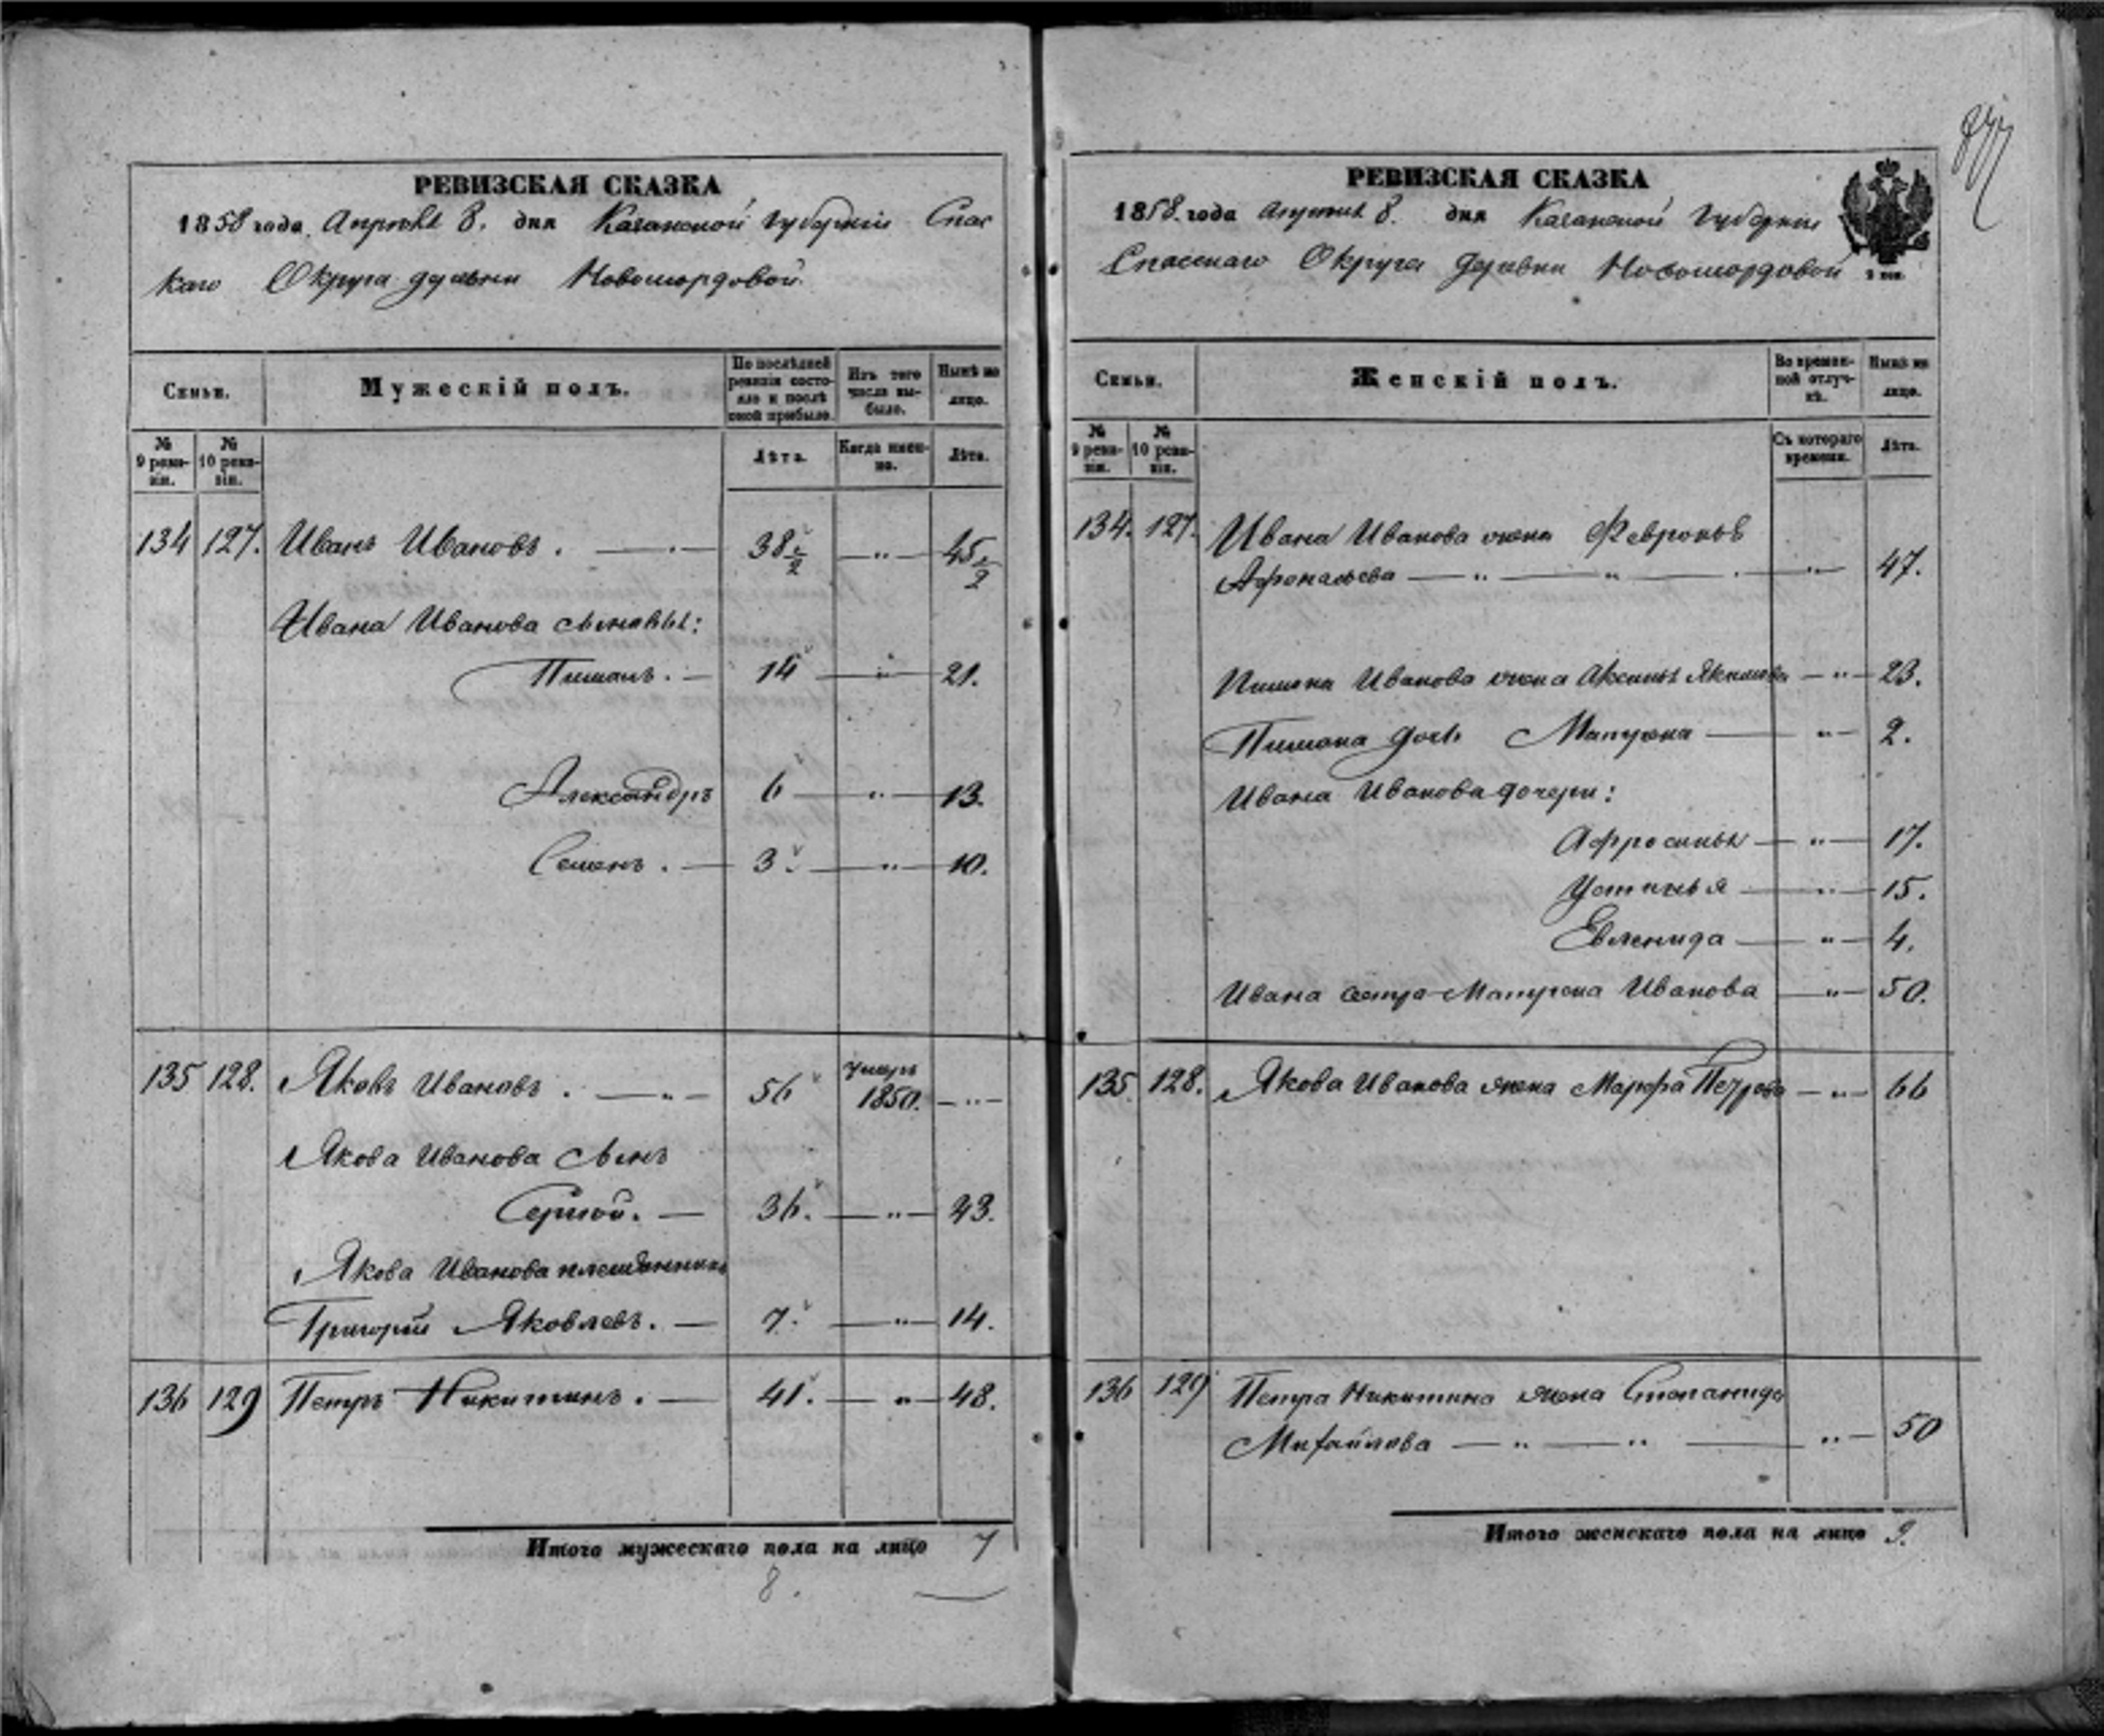 РЕВИЗСКАЯ СКАЗКА
1858 года Апреля 8. дня Казанской Губерніи Спас
каго Округа деревни Новомордовой
Семьи. Мужескій полъ. По послѣдней ревизіи состояло и послѣ оной прибыло. Изъ того числа выбыло. Нынѣ на лицо.
№ 9 ревизіи. № 10 ревизіи. Лѣта. Когда именно. Лѣта.
134 127. Иванъ Ивановъ. — " — 38½ — " — 45½
Ивана Иванова сыновья:
Пиманъ. — 14 — " — 21.
Александръ 6 — " — 13.
Семенъ. — 3. — " — 10.
135 128. Яковъ Ивановъ. — " — 56 умеръ 1850. — " —
Якова Иванова сынъ
Сергей. — 36. — " — 43.
Якова Иванова племянникъ
Григорій Яковлевъ. — 7. — " — 14.
136 129 Петръ Никитинъ. — 41. — " — 48.
Итого мужескаго пола на лицо 7
8.
РЕВИЗСКАЯ СКАЗКА
1858. года Апреля 8. дня Казанской Губерніи
Спасскаго Округа деревни Новомордовой
Семьи. Женскій полъ. Во временной отлучкѣ. Нынѣ на лицо.
№ 9 ревизіи. № 10 ревизіи. Съ котораго времени. Лѣта.
134. 127. Ивана Иванова жена Февронья
Афонасьева — " — " — " — 47.
Пимана Иванова жена Аксинья Якимова — " — 23.
Пимана дочь Матрона — " — 2.
Ивана Иванова дочери:
Афросинья — " — 17.
Устинья — " — 15.
Евленида — " — 4.
Ивана сестра Матрена Иванова — " — 50.
135. 128. Якова Иванова жена Марфа Петрова — " — 66
136 129 Петра Никитина жена Степанида
Михайлова — " — " — " — 50
Итого женскаго пола на лицо 9.